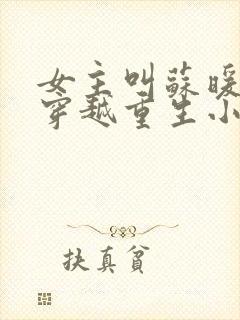 女主叫蘇暖
穿越重生小
扶真貧